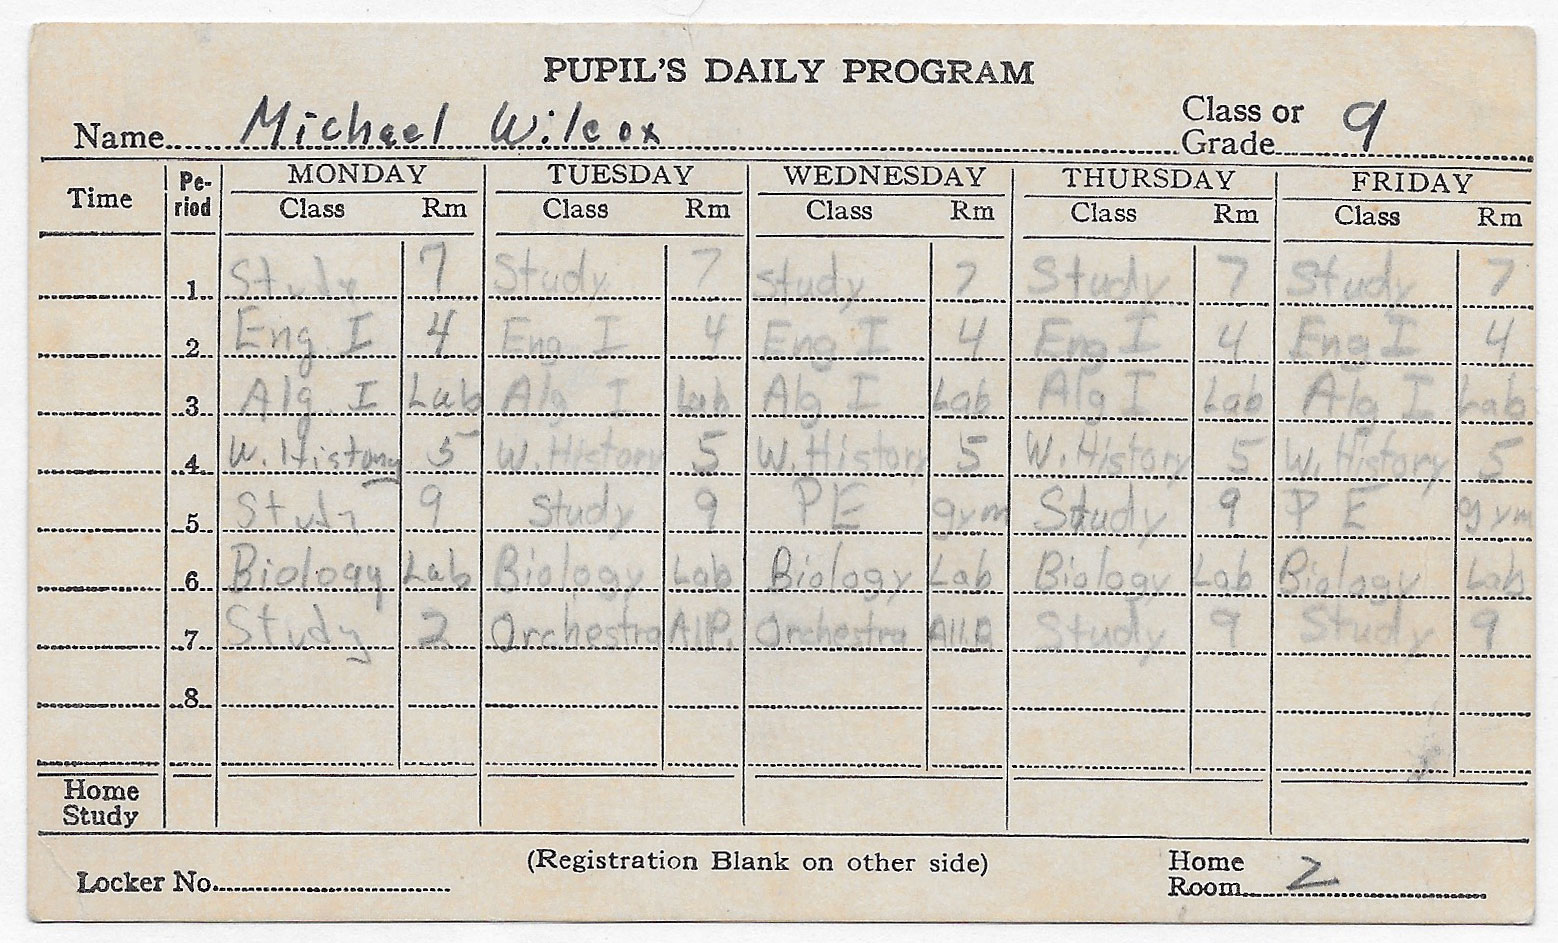 PUPIL'S DAILY PROGRAM
Name Michael Wilcox Class or Grade 9
Time Pe-riod MONDAY TUESDAY WEDNESDAY THURSDAY FRIDAY
Class Rm Class Rm Class Rm Class Rm Class Rm
1 Study 7 Study 7 Study 7 Study 7 Study 7
2 Eng. I 4 Eng. I 4 Eng I 4 Eng I 4 Eng I 4
3 Alg. I Lab Alg I Lab Alg I Lab Alg I Lab Alg I Lab
4 W. History 5 W. History 5 W. History 5 W. History 5 W. History 5
5 Study 9 Study 9 PE gym Study 9 PE gym
6 Biology Lab Biology Lab Biology Lab Biology Lab Biology Lab
7 Study 2 Orchestra All P. Orchestra All P. Study 9 Study 9
8
Home Study
(Registration Blank on other side)
Locker No. Home Room 2